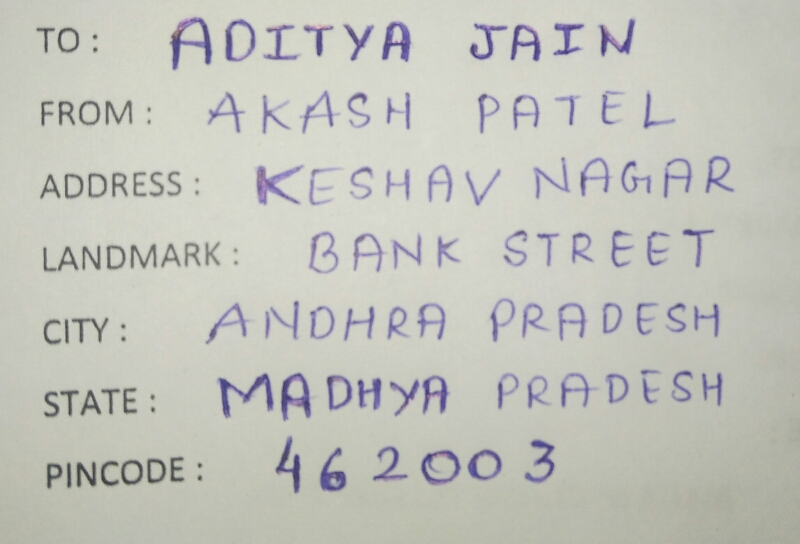 TO : ADITYA JAIN
FROM : AKASH PATEL
ADDRESS : KESHAV NAGAR
LANDMARK : BANK STREET
CITY : ANDHRA PRADESH
STATE : MADHYA PRADESH
PINCODE : 462003